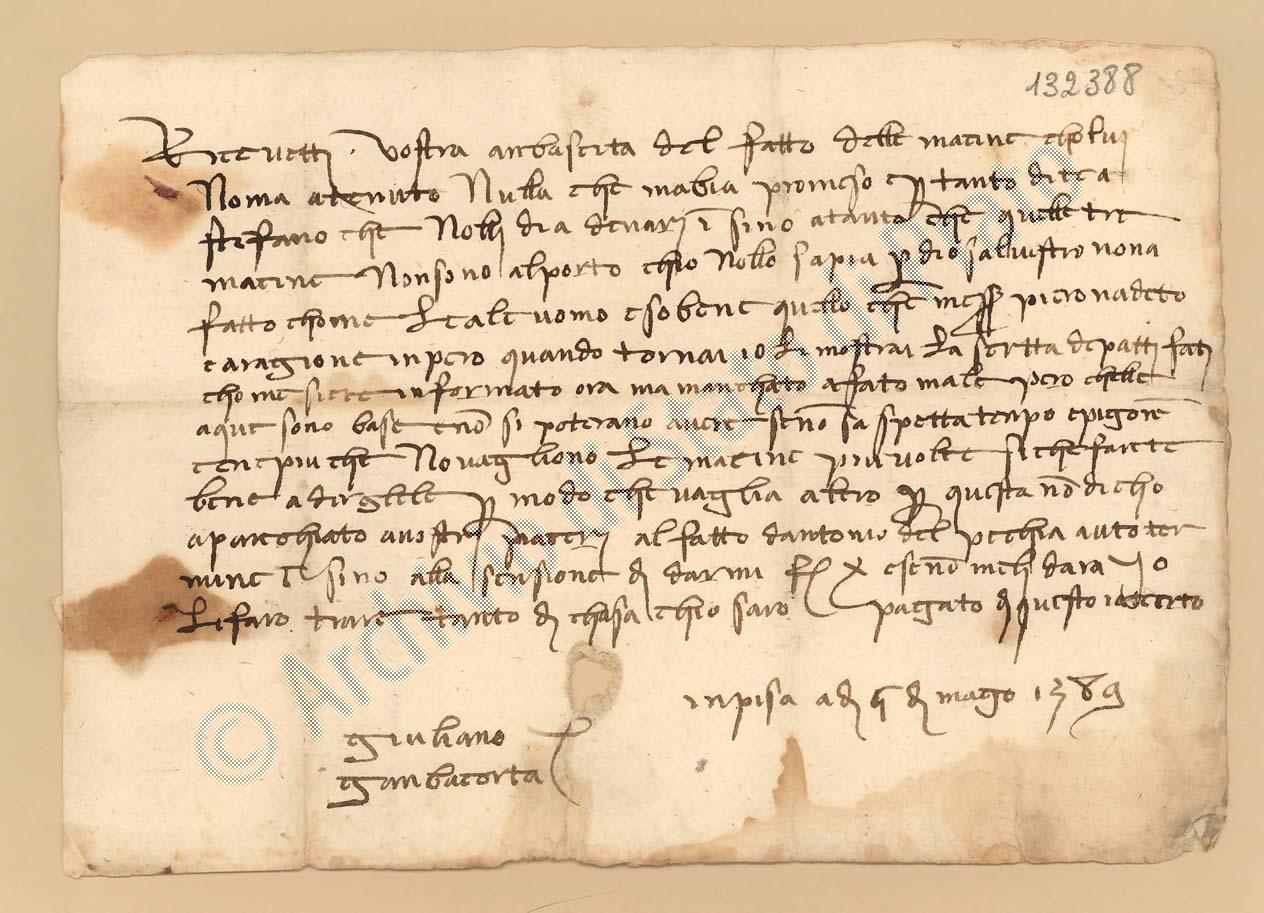 132388
Ricevetti vostra anbascita del fatto delle macine cholui
Noma atenuto Nulla che mabia promeso e p tanto dite a
stefano che Nolli dia denari i sino atanto che quelle tre
macine Nonsono alporto chio Nollo sapia p dio salvestro nona
fatto chome Leale uomo e sobene quello che mess piero nadeto
e aragione inpero quando tornai io Li mostrai La scritta de patti fati
chome siete informato ora ma manchato a fato male pero chelle
aque sono base e no si poterano avere seno sa spetta tenpo e
cene piu che No vagliono Le macine piu volte si che farete
bene a dirglele p modo che vaglia altro p questa no dicho
aparechiato a vostri piaceri al fatto dantonio del pechia auto ter
mine i sino alla sensione di darmi f X e seno meli dara io
Li faro trare tanto di chasa chio saro pagato di questo
inpisa a di di magio 1389
giuliano
ganbacorta
© Archivio di Stato di Prato